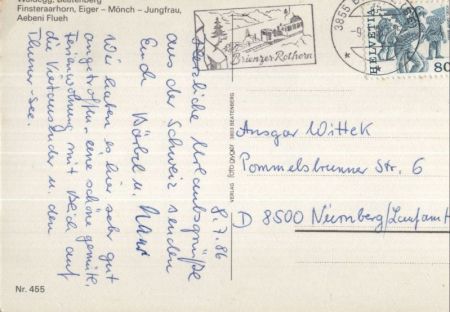 Waldegg, Beatenberg
Finsteraarhorn, Eiger – Mönch – Jungfrau,
Aebeni Flueh
8.7.86
Herzliche Urlaubsgrüße
aus der Schweiz senden
Euch Bärbel u.
Wir haben es hier sehr gut
angetroffen – eine schöne gemütl.
Ferienwohnung mit Blick auf
die Viertausender u. den
Thuner-See.
Nr. 455
VERLAG foto gyger 3803 BEATENBERG
Brienzer-Rothorn
3855
HELVETIA
80
Ansgar Wittek
Pommelsbrunner Str. 6
D 8500 Nürnberg/Laufamh